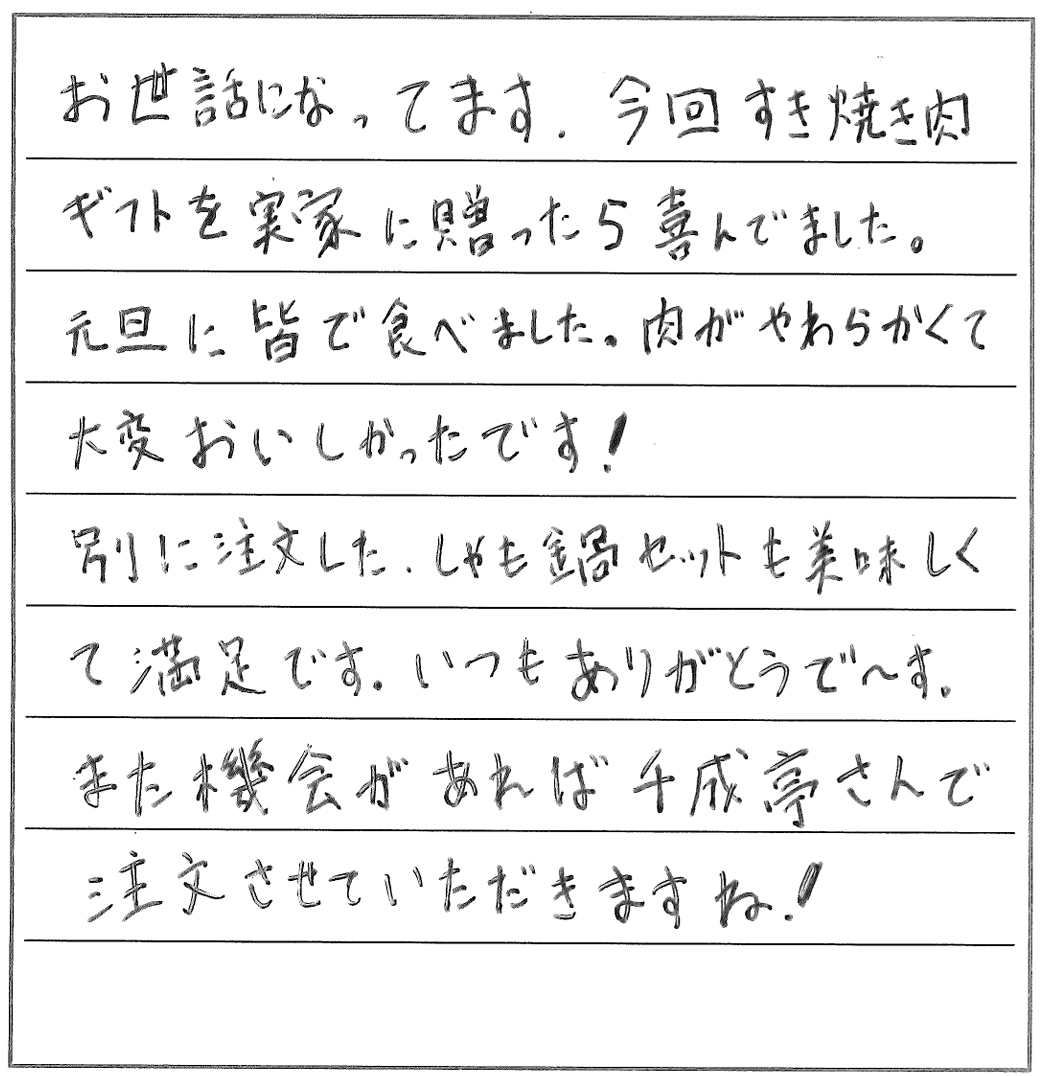 お世話になってます. 今回すき焼き肉
ギフトを実家に贈ったら喜んでました。
元旦に皆で食べました。肉がやわらかくて
大変おいしかったです!
別に注文した.しゃも鍋セットも美味しく
て満足です.いつもありがとうで〜す.
また機会があれば千成亭さんで
注文させていただきますね!